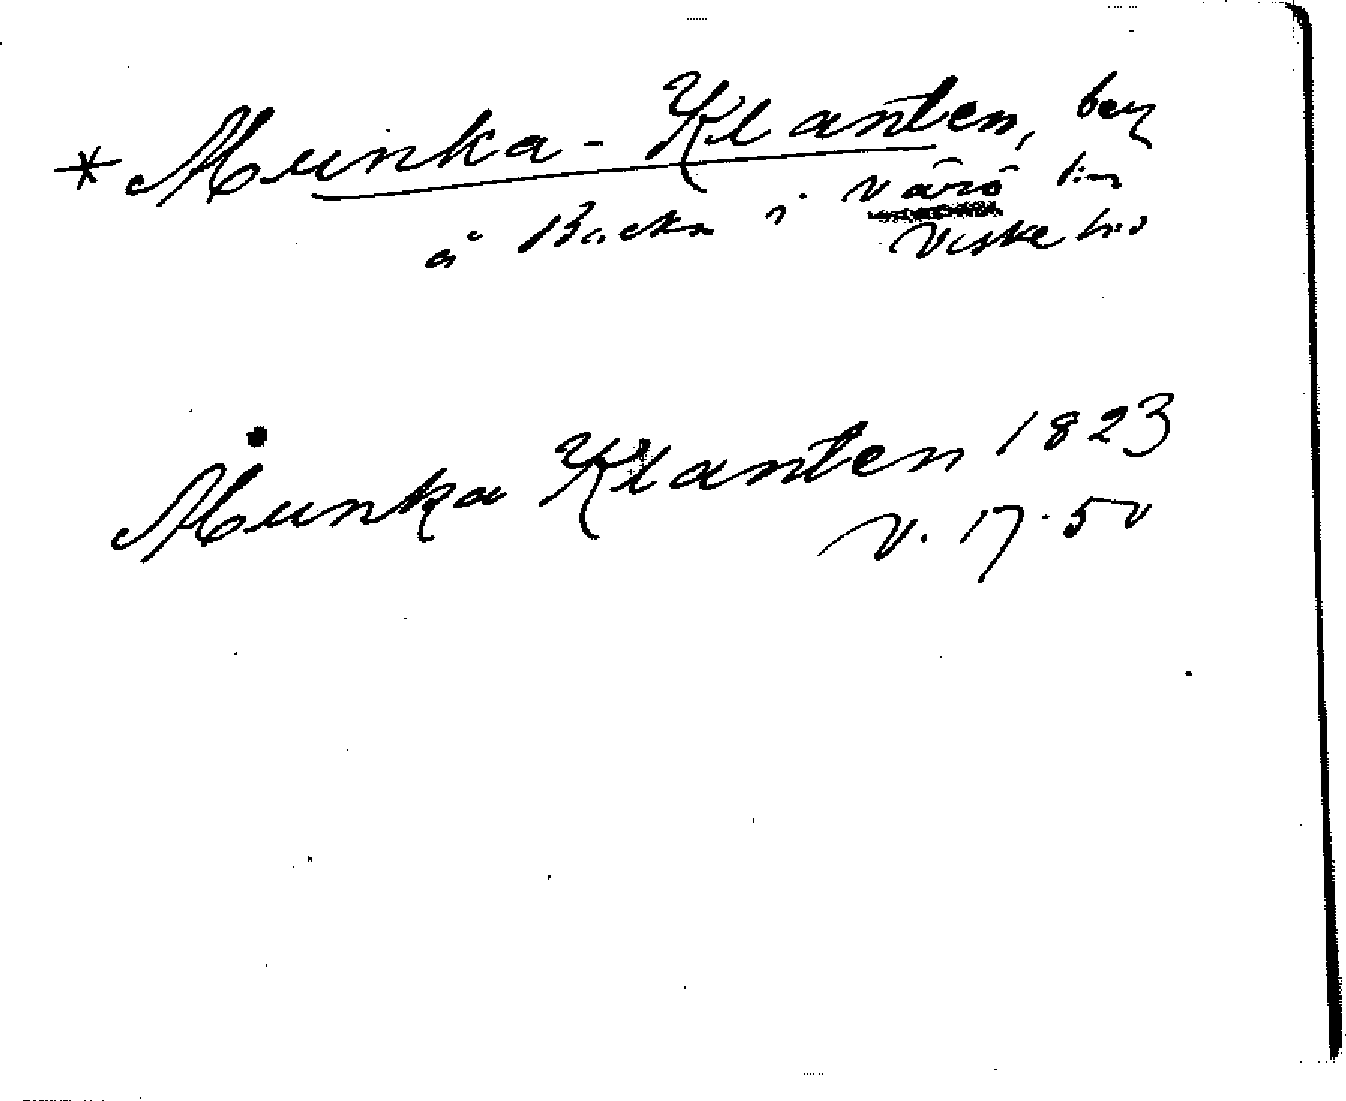 * Munka-Klanten, berg
å Backa i Värö sn
Viske hd
Munka Klanten 1823
V. 17.50